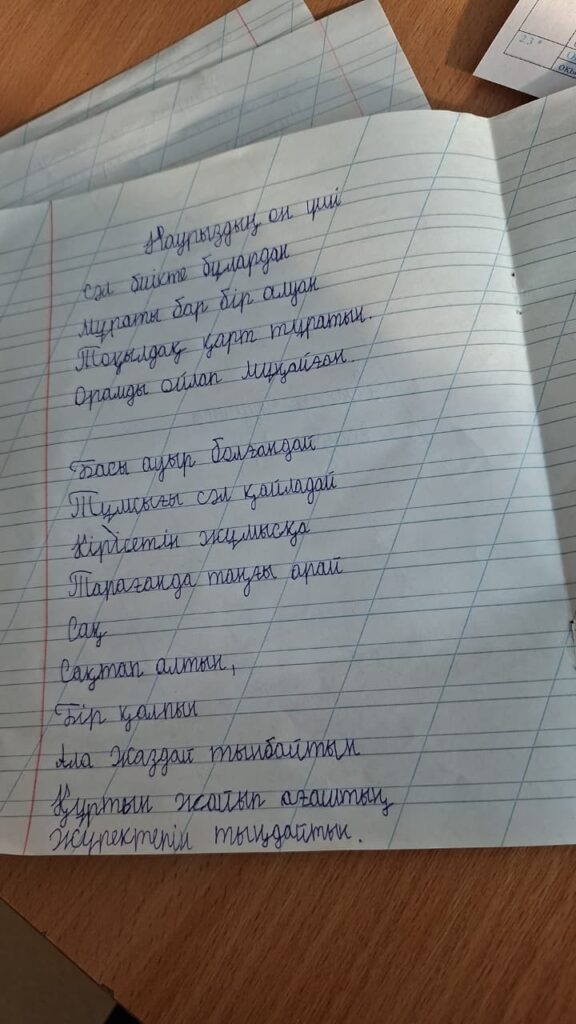 23*
Наурыздың он үші
Сәл биікте бұлардан
Мұраты бар бір алуан
Тоқылдақ қарт тұратын.
Орамды ойлап мұңайған.
Басы ауыр болғандай
Тұмсығы сәл қайладай
Кірісетін жұмысқа
Тарағанда таңғы арай
Сақ
Сақтап алтын,
Бір қалпын
Ала жаздай тынбайтын
Құртын жайып ағаштың
Жүректерін тыңдайтын.